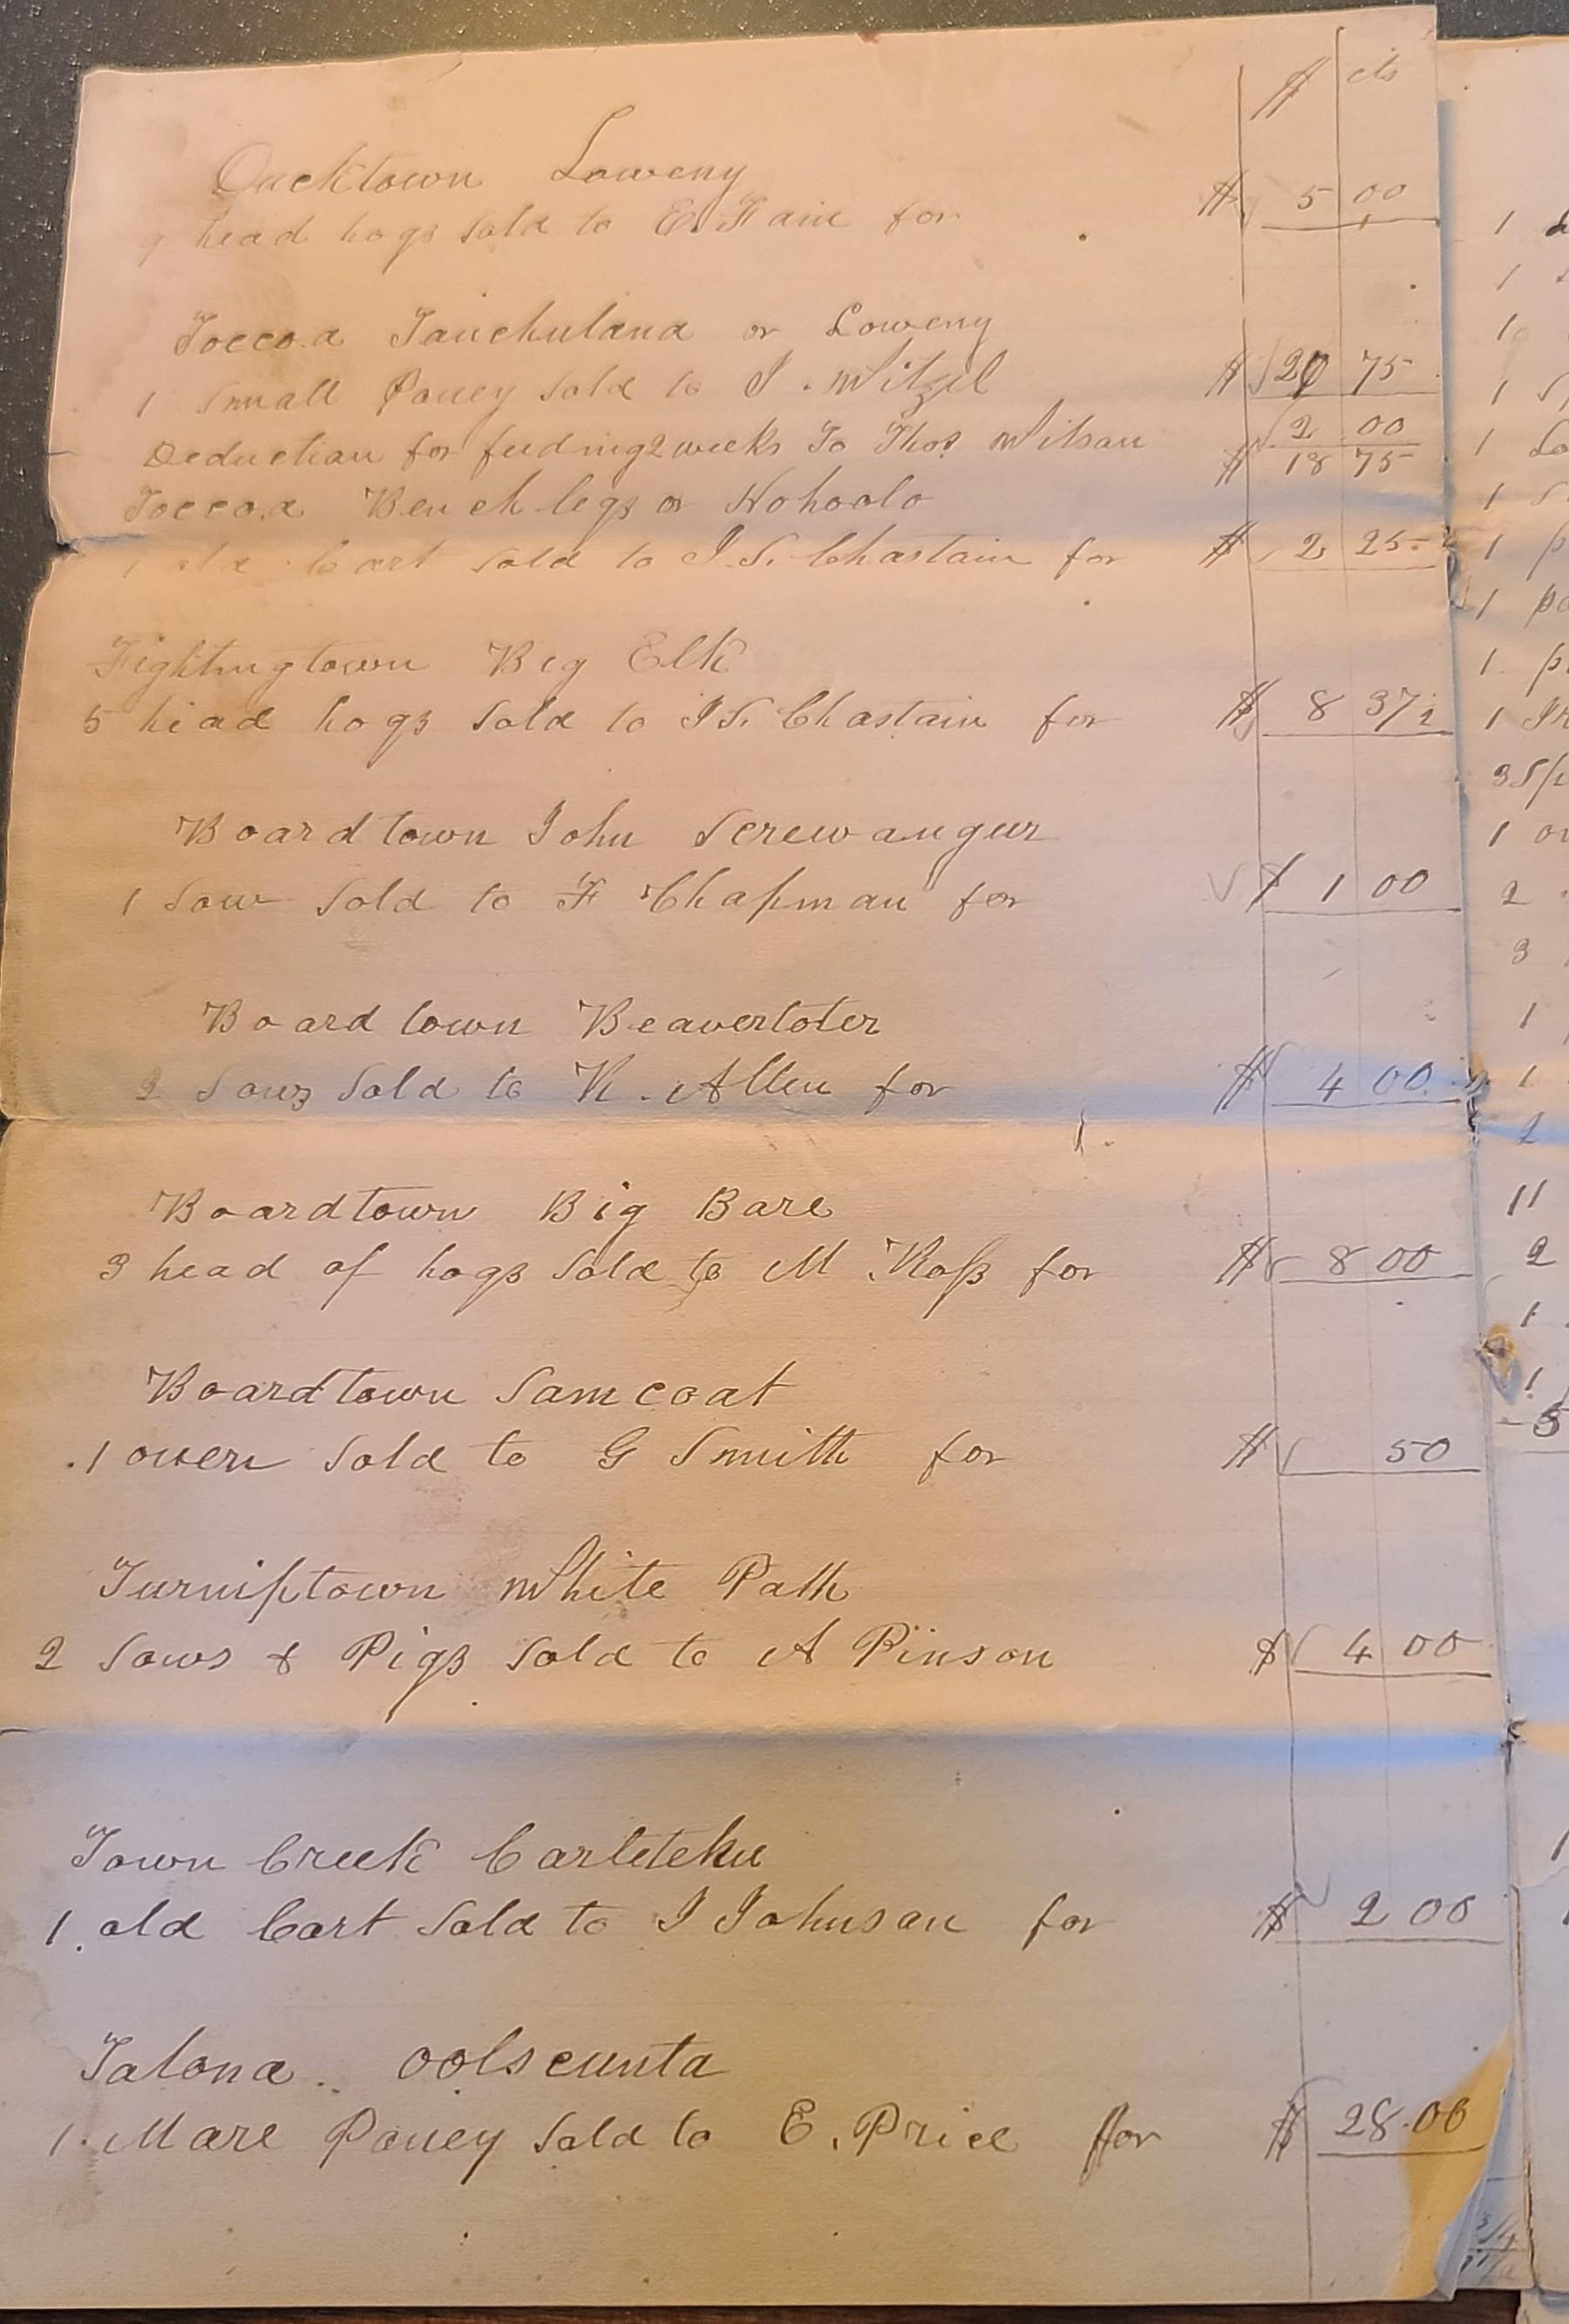 $ cts
Ducktown Loweny
9 head hogs sold to E. Fain for $ 5 00
Toccoa Tauchulana or Loweny
1 Small Poney sold to J. Witzel $ 20 75
Deduction for feeding 2 weeks To Thos Wilson 2 00
$ 18 75
Toccoa Bench legs or Nohoolo
old Cart sold to J.S. Chastain for $ 2 25
Fightingtown Big Elk
5 head hogs sold to J S. Chastain for $ 8 37½
Boardtown John Screwaugur
1 Sow sold to F Chapman for $ 1 00
Boardtown Beavertoter
2 Sows sold to K. Allen for $ 4 00
Boardtown Big Bare
3 head of hogs sold to M Ross for $ 8 00
Boardtown Samcoat
1 oven sold to G Smith for $ 50
Turniptown White Path
2 Sows & Pigs sold to A Pinson $ 4 00
Town Creek Carleteke
1 old Cart sold to J Johnson for $ 2 00
Talona oolscunta
1 Mare Poney sold to E. Price for $ 28.00